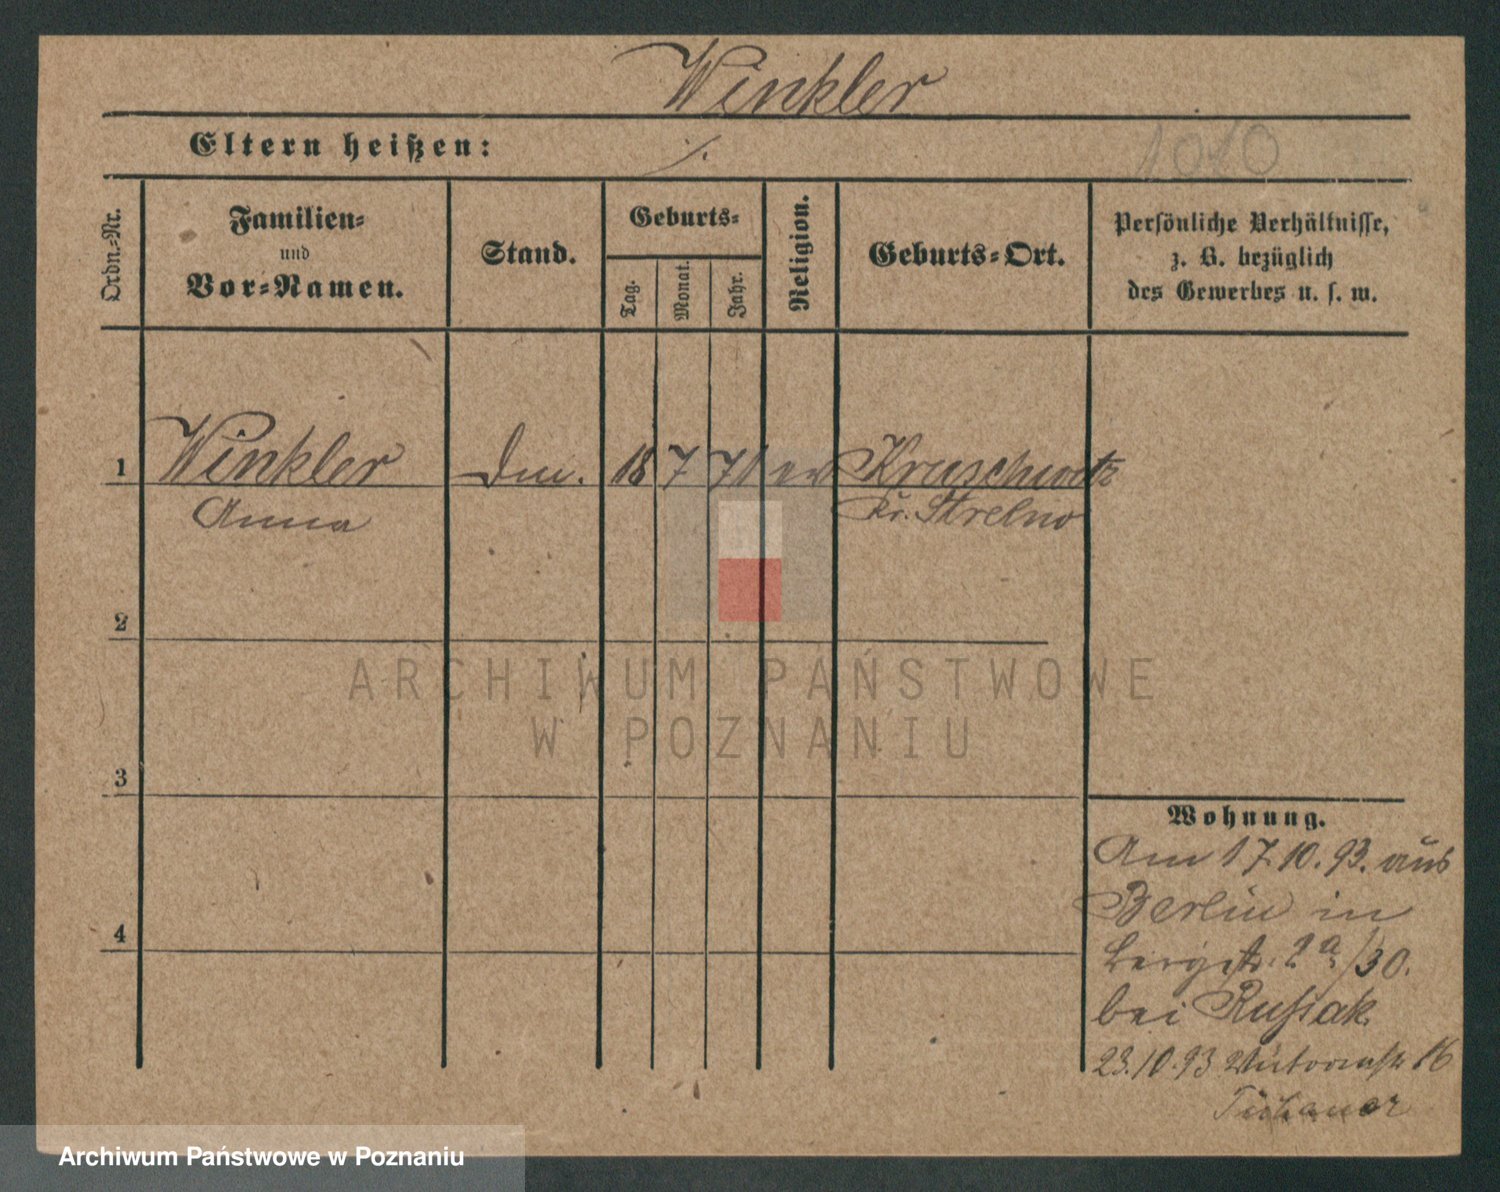 Winkler
Eltern heißen: ./.
1010
Ordn.-Nr.
Familien-
und
Vor-Namen.
Stand.
Geburts-
Tag.
Monat.
Jahr.
Religion.
Geburts-Ort.
Persönliche Verhältnisse,
z. B. bezüglich
des Gewerbes u. s. w.
1 Winkler 18 7 71 ev Kruschwitz
Anna Kr. Strelno
2
3
4
ARCHIWUM PAŃSTWOWE
W POZNANIU
Wohnung.
Am 17.10.93. aus
Berlin in
Bergstr. 2a/30.
bei Rusiak
23.10.93 16
Archiwum Państwowe w Poznaniu